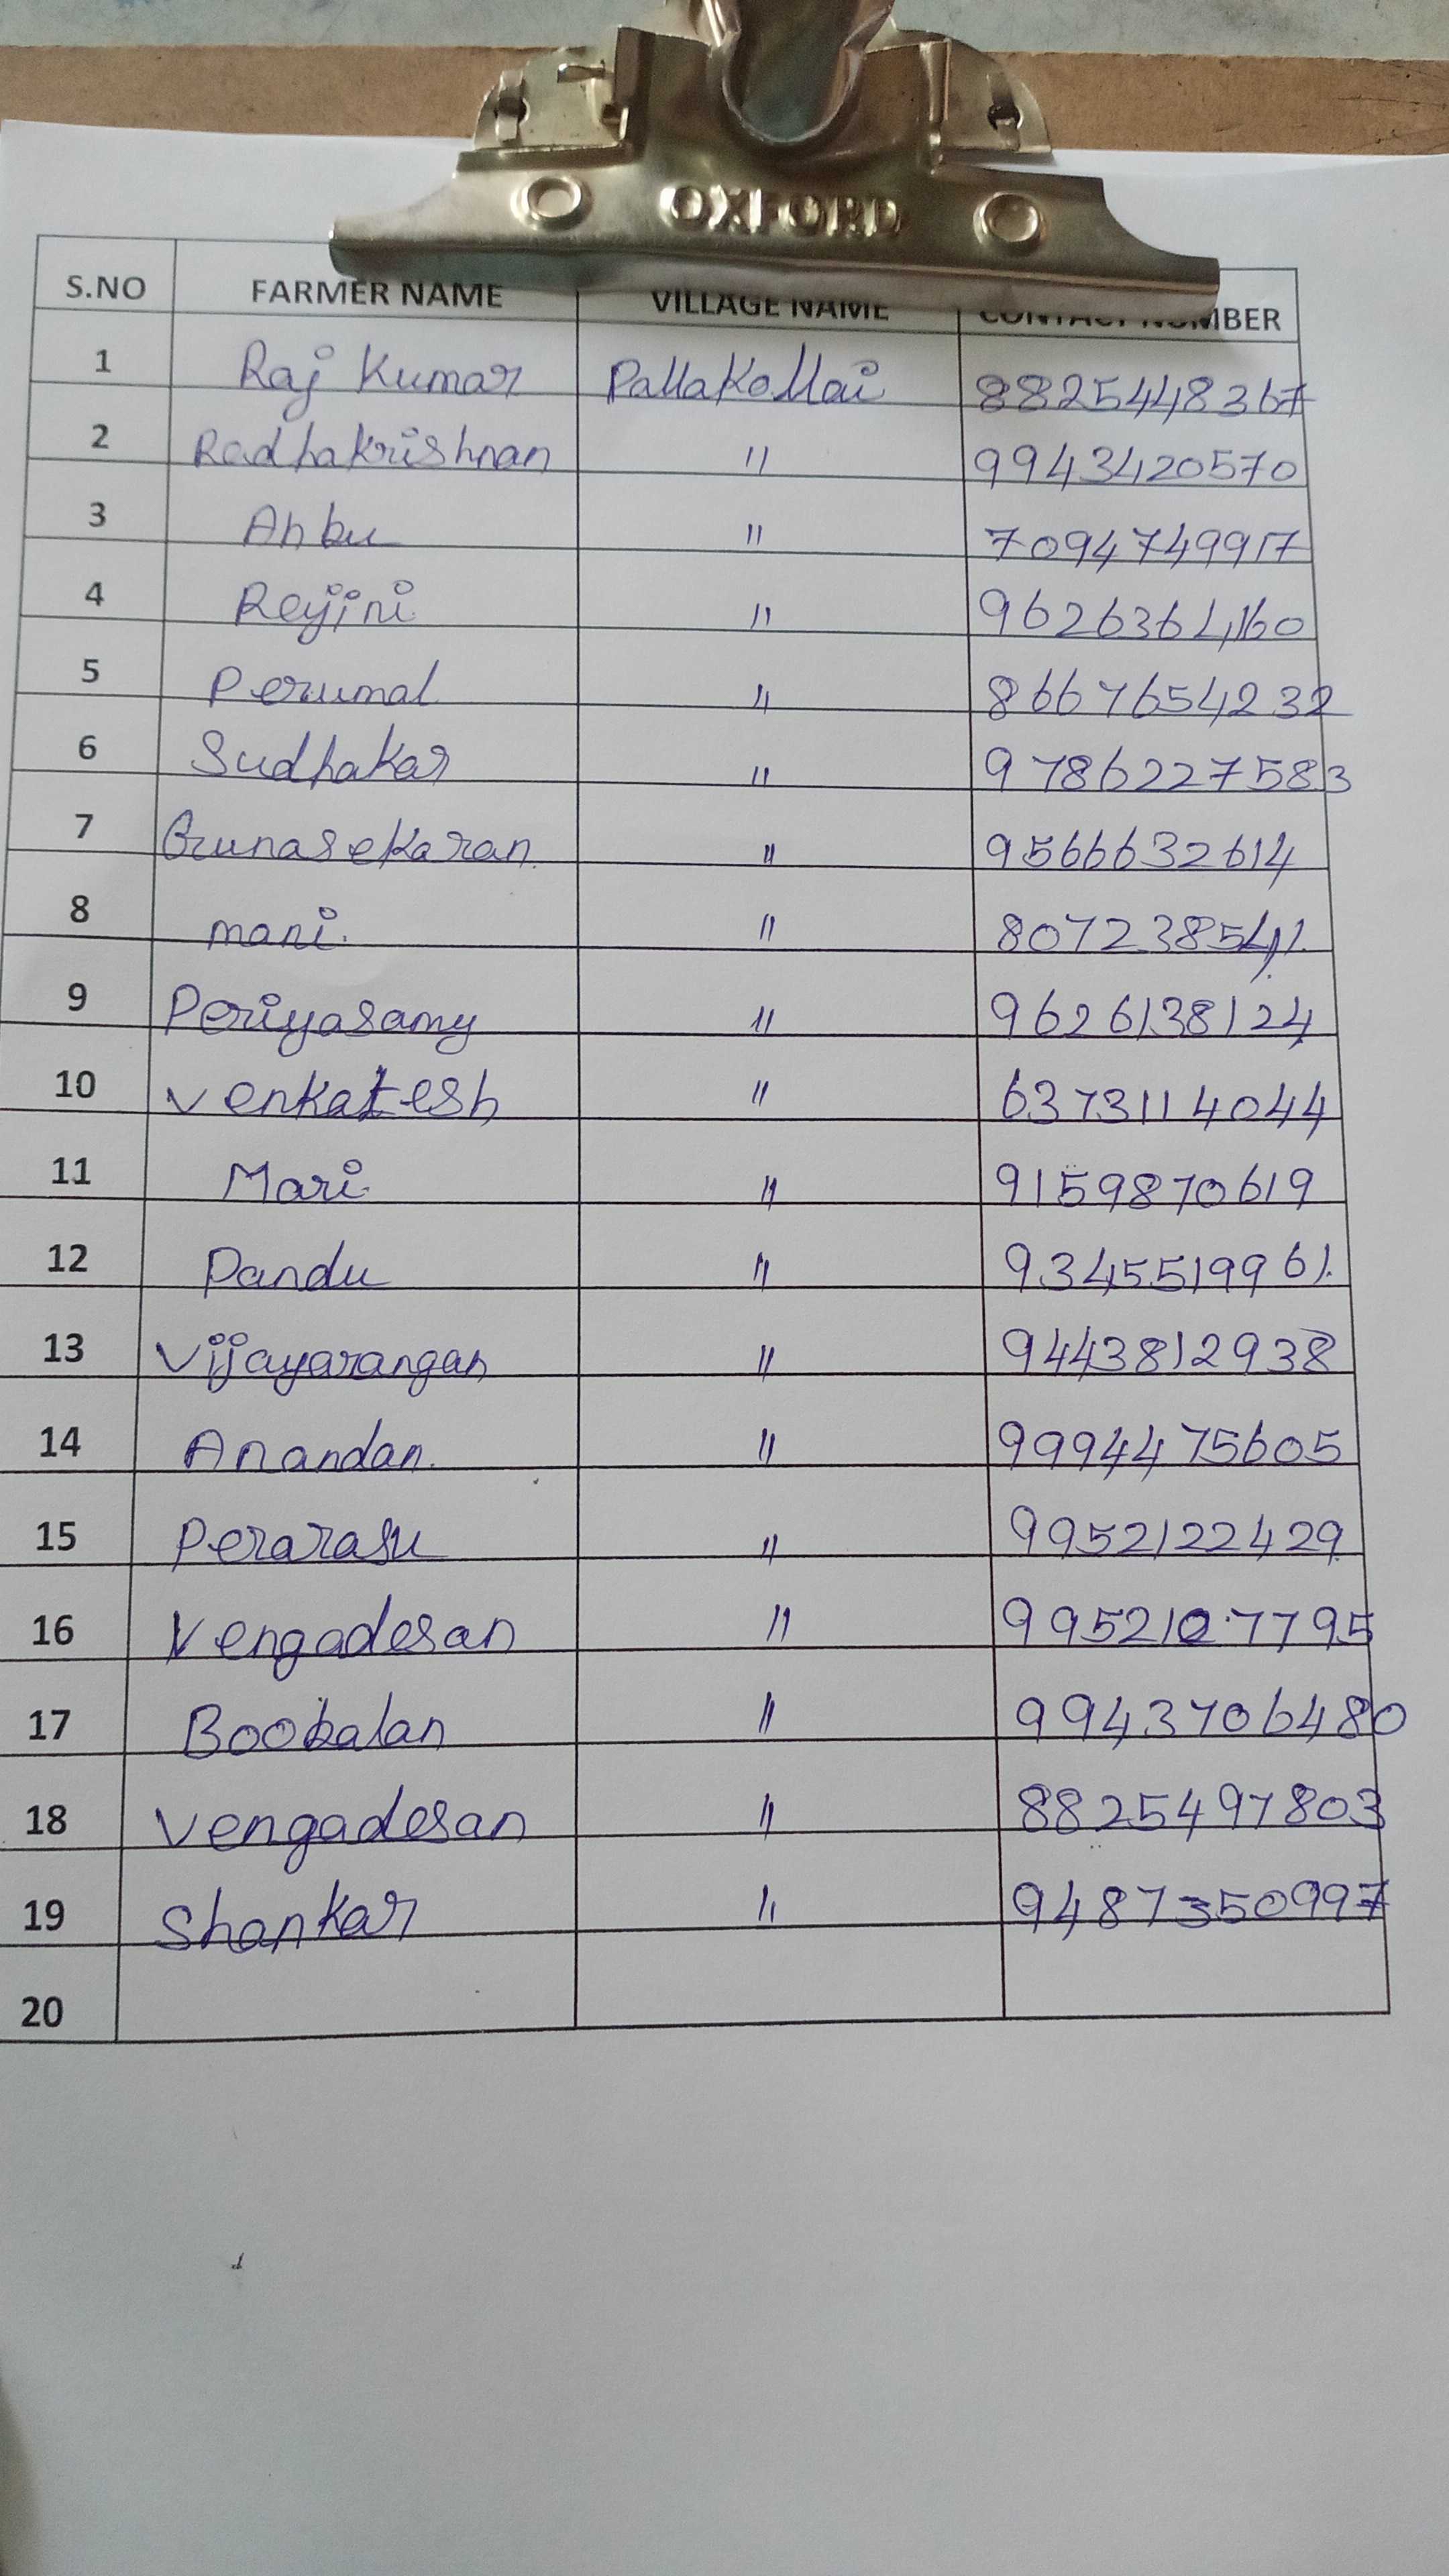 OXFORD
S.NO FARMER NAME VILLAGE NAME CONTACT NUMBER
1 Raj Kumar Pallakollai 8825448367
2 Radhakrishnan " 9943420570
3 Anbu " 7094749917
4 Rejini " 9626364160
5 Perumal " 8667654232
6 Sudhakar " 9786227583
7 Gunasekaran " 9566632614
8 mani. " 8072385441
9 Periyasamy " 9626138124
10 Venkatesh " 6373114044
11 Mari " 9159870619
12 Pandu " 9345519961.
13 Vijayarangan " 9443812938
14 Anandan. " 9994475605
15 Perarasu " 9952122429
16 Vengadesan " 9952107795
17 Bookalan " 9943706480
18 Vengadesan " 8825497803
19 Shankar " 9487350997
20